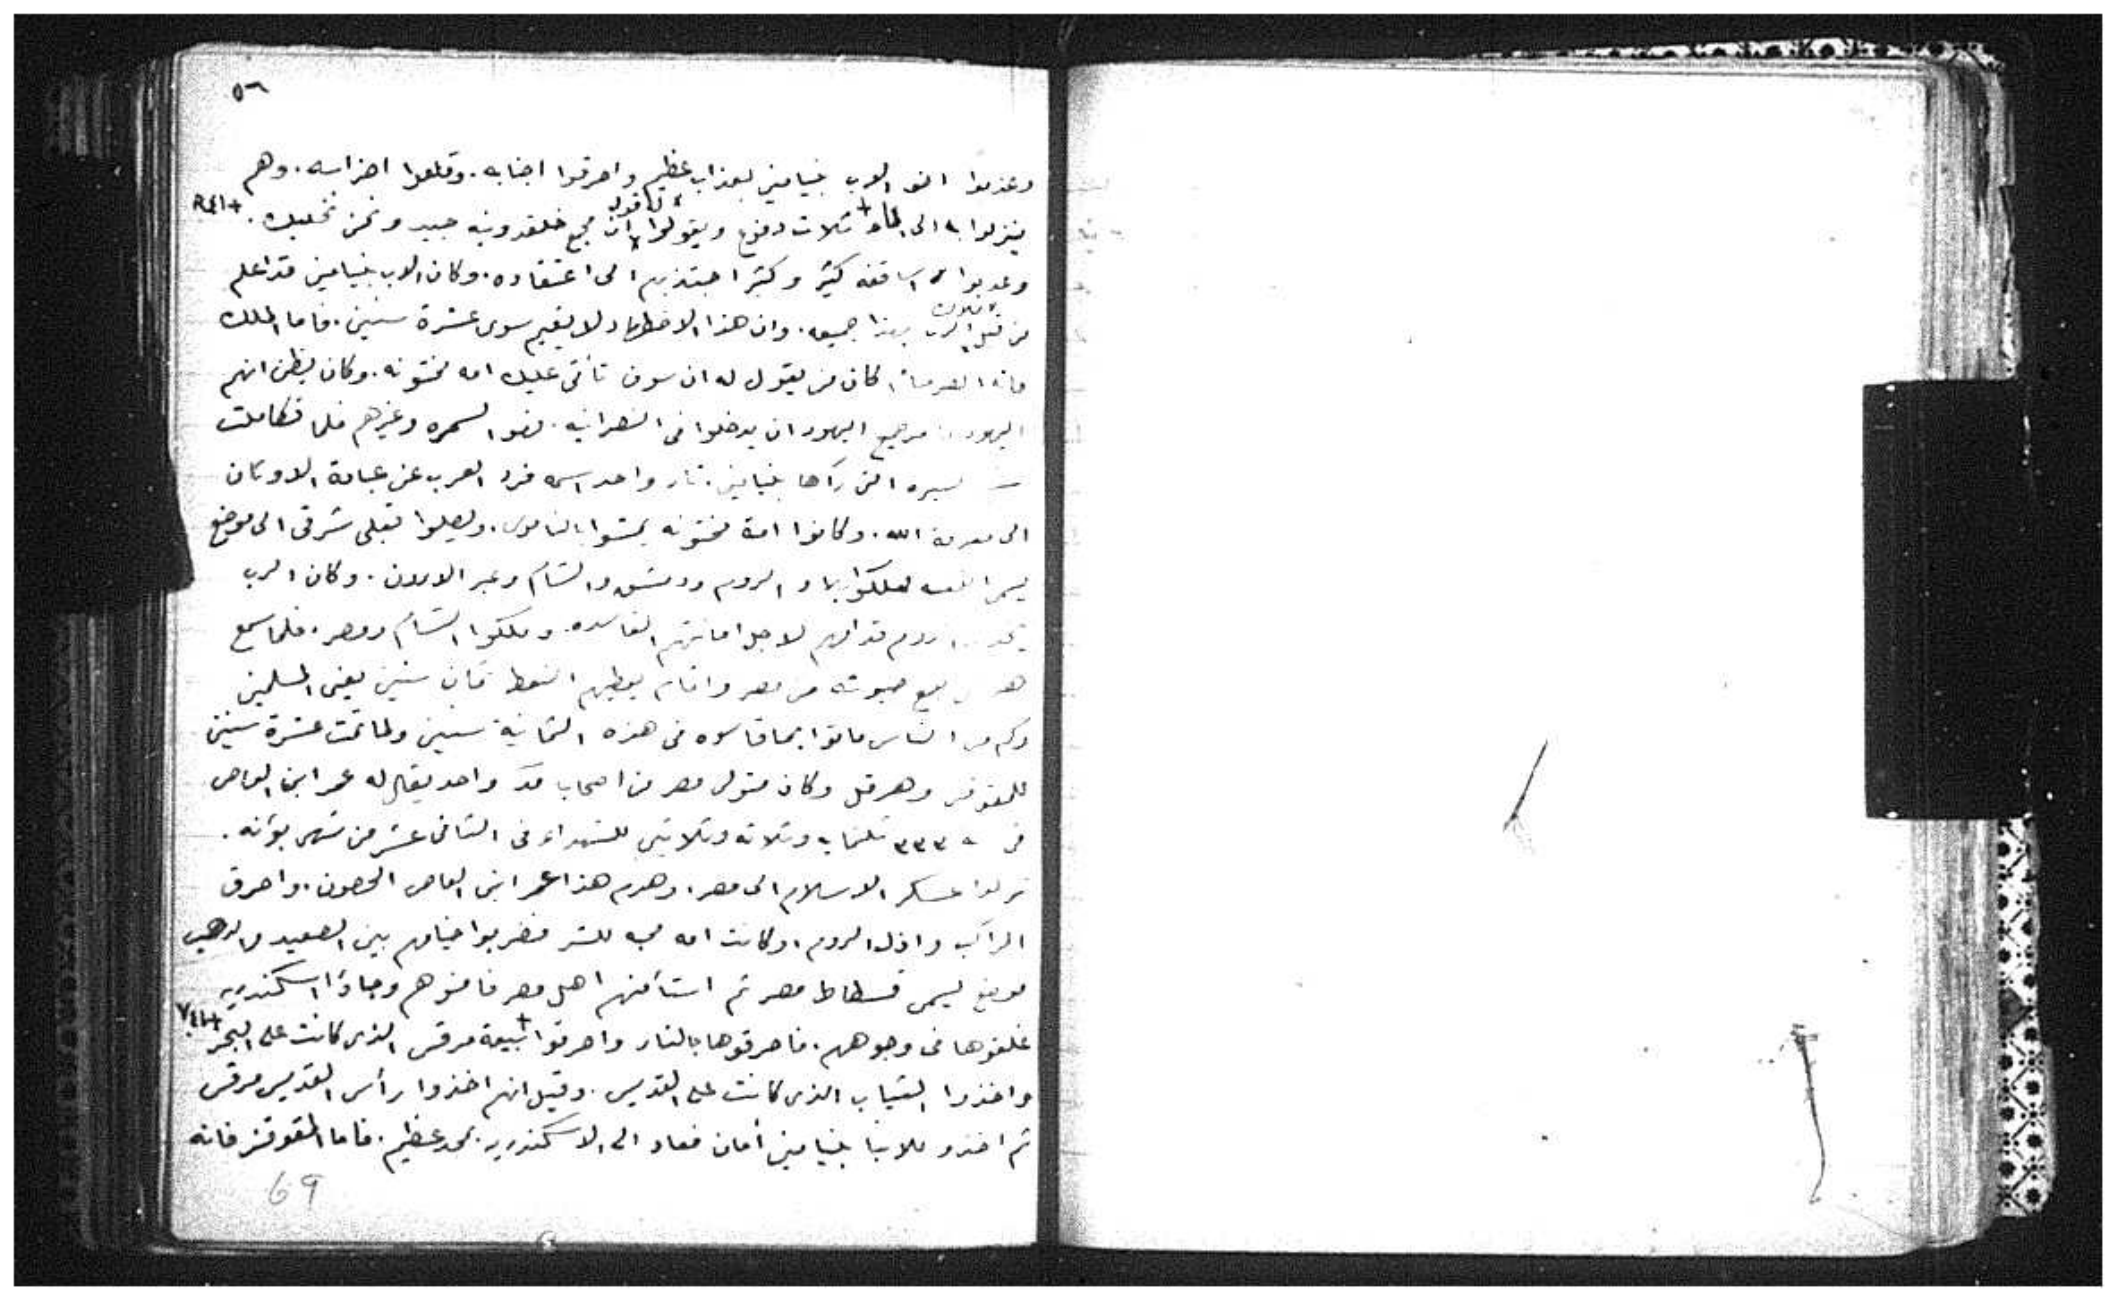 ٥٦
وعذبوا اخو الاب بنيامين بعذاب عظيم واحرقوا اجنابه. وقلعوا اضراسه. وهم
ينزلوا به الى الماء + ثلاث دفوع ويقولوا ان مجمع خلقدونيه جيد ونحن نخليك. +
وعذبوا اساقفه كثير وكثيرا اجتذبهم الى اعتقاده. وكان الاب بنيامين قد اعلم
من قبل الرب بهذا جميعه. وان هذا الاضطهاد لا يقيم سوى عشرة سنين. فاما الملك
كان من يقول له ان سوف تاتى عليك امه مختونه. وكان يظن انهم
اليهود جميع اليهود ان يدخلوا فى النصرانيه. السمره وغيرهم فلما تكاملت
التى رآها بنيامين. ثار واحد اسمه فرد العرب عن عبادة الاوثان
الى معرفة الله. وكانوا امة مختونه يمشوا بالناموس. وصلوا قبلى شرقى الى موضع
يسمى فملكوا بلاد الروم ودمشق والشام وعبر الاردن. وكان الرب
الروم قدامهم لاجل امانتهم الفاسده. وملكوا الشام ومصر. فلما سمع
جمع جيوشه من مصر واقام يعطيهم القبط ثمان سنين يعنى المسلمين
وكم من الناس ماتوا بما قاسوه فى هذه الثمانية سنين ولما تمت عشرة سنين
للمقوقس وهرقل وكان متولى مصر من اصحاب واحد يقال له عمر ابن العاص
فى ٣٣٣ ثلثمايه وثلاثه وثلاثين للشهداء فى الثانى عشر من شهر بوانه.
نزلوا عسكر الاسلام الى مصر. وهدم هذا عمر ابن العاص الحصون. واحرق
المراكب واذل الروم. وكانت امه محبه للشر فضربوا خيامهم بين الصعيد والريف
موضع يسمى فسطاط مصر ثم استأمنهم اهل مصر فامنوهم وجاؤا اسكندريه
غلقوها فى وجوههم. فاحرقوها بالنار واحرقوا + بيعة مرقس الذى كانت على البحر +
واخذوا الثياب الذى كانت على القديس. وقيل انهم اخذوا رأس القديس مرقس
ثم اخذو للانبا بنيامين أمان فعاد الى الاسكندريه بمجد عظيم. فاما المقوقس فانه
69